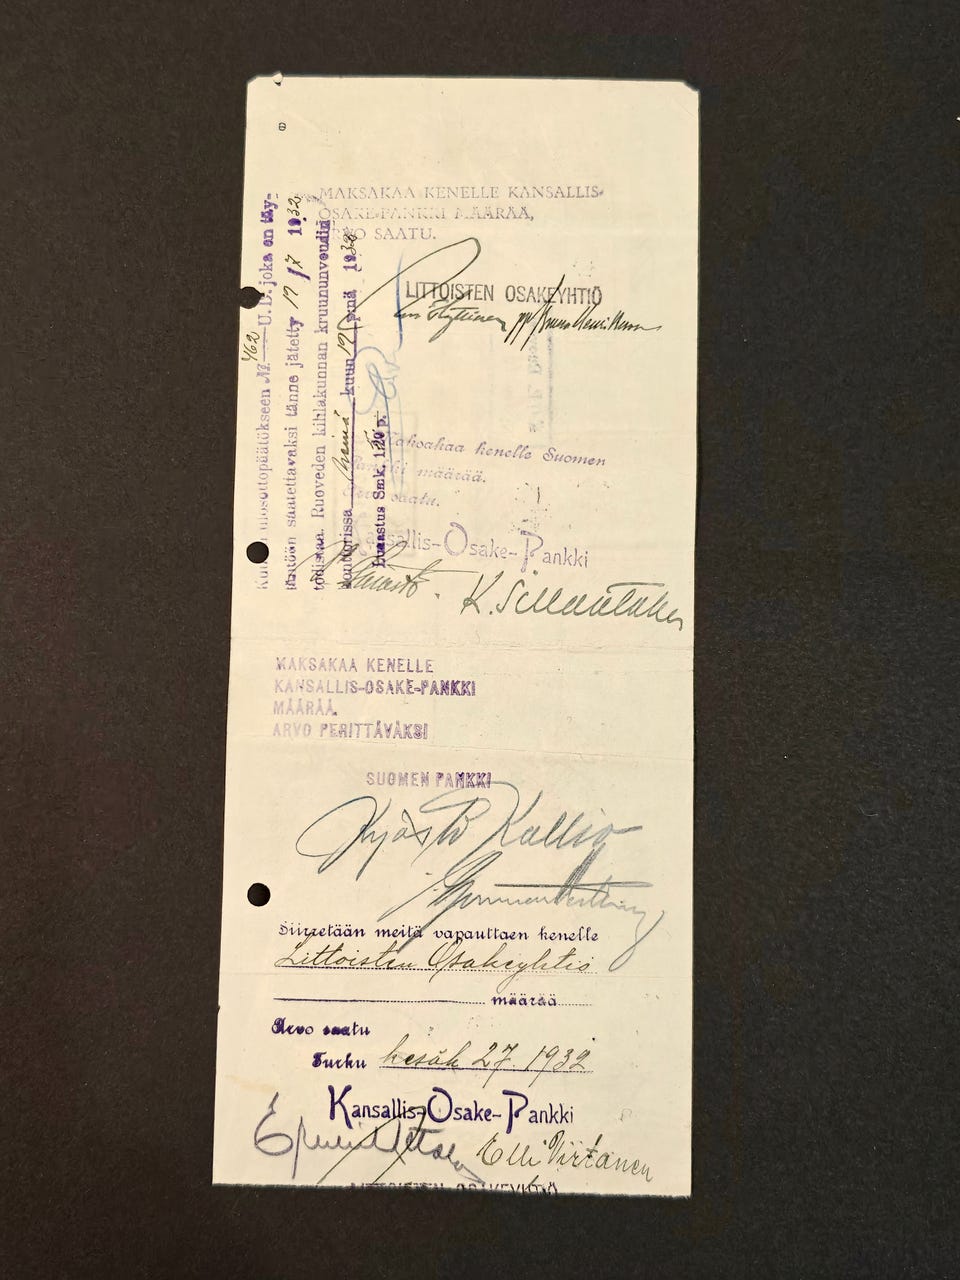 MAKSAKAA KENELLE KANSALLIS-
OSAKE-PANKKI MÄÄRÄÄ,
ARVO SAATU.
LITTOISTEN OSAKEYHTIÖ
ulosottopäätökseen № 462 U.D. joka on täy-
täntöön saatettavaksi tänne jätetty 17/7 1932
todistaa. Ruoveden kihlakunnan kruununvoudin
konttorissa heinä kuun 19 p:nä 1932
Lunastus Smk. 1:20 p.
Maksakaa kenelle Suomen
Pankki määrää.
Arvo saatu.
Kansallis-Osake-Pankki
MAKSAKAA KENELLE
KANSALLIS-OSAKE-PANKKI
MÄÄRÄÄ.
ARVO PERITTÄVÄKSI
SUOMEN PANKKI
Kyösti Kallio
Siirretään meitä vapauttaen kenelle
Littoisten Osakeyhtiö
määrää
Arvo saatu
Turku kesäk 27. 1932
Kansallis-Osake-Pankki
Elli Virtanen
LITTOISTEN OSAKEYHTIÖ